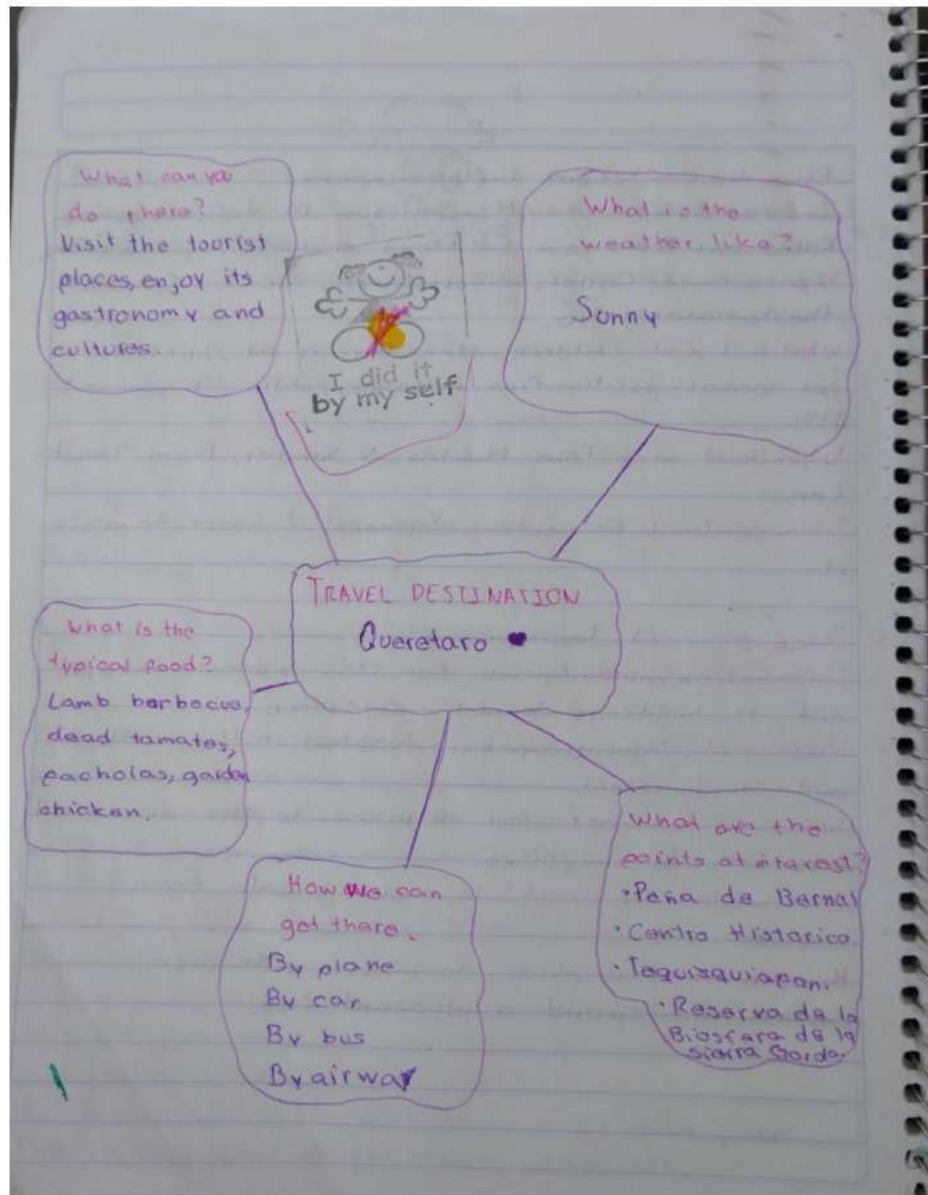 What can you
do there?
Visit the tourist
places, enjoy its
gastronomy and
cultures.
I did it
by my self
What is the
weather like?
Sunny
TRAVEL DESTINATION
Queretaro
What is the
typical food?
Lamb barbecue,
dead tamates,
pacholas, garden
chicken.
How we can
get there.
By plane
By car
By bus
By airway
What are the
points at interest?
•Peña de Bernal
•Centro Historico
•Tequisquiapan.
•Reserva de la
Biosfara de la
Sierra Gorda